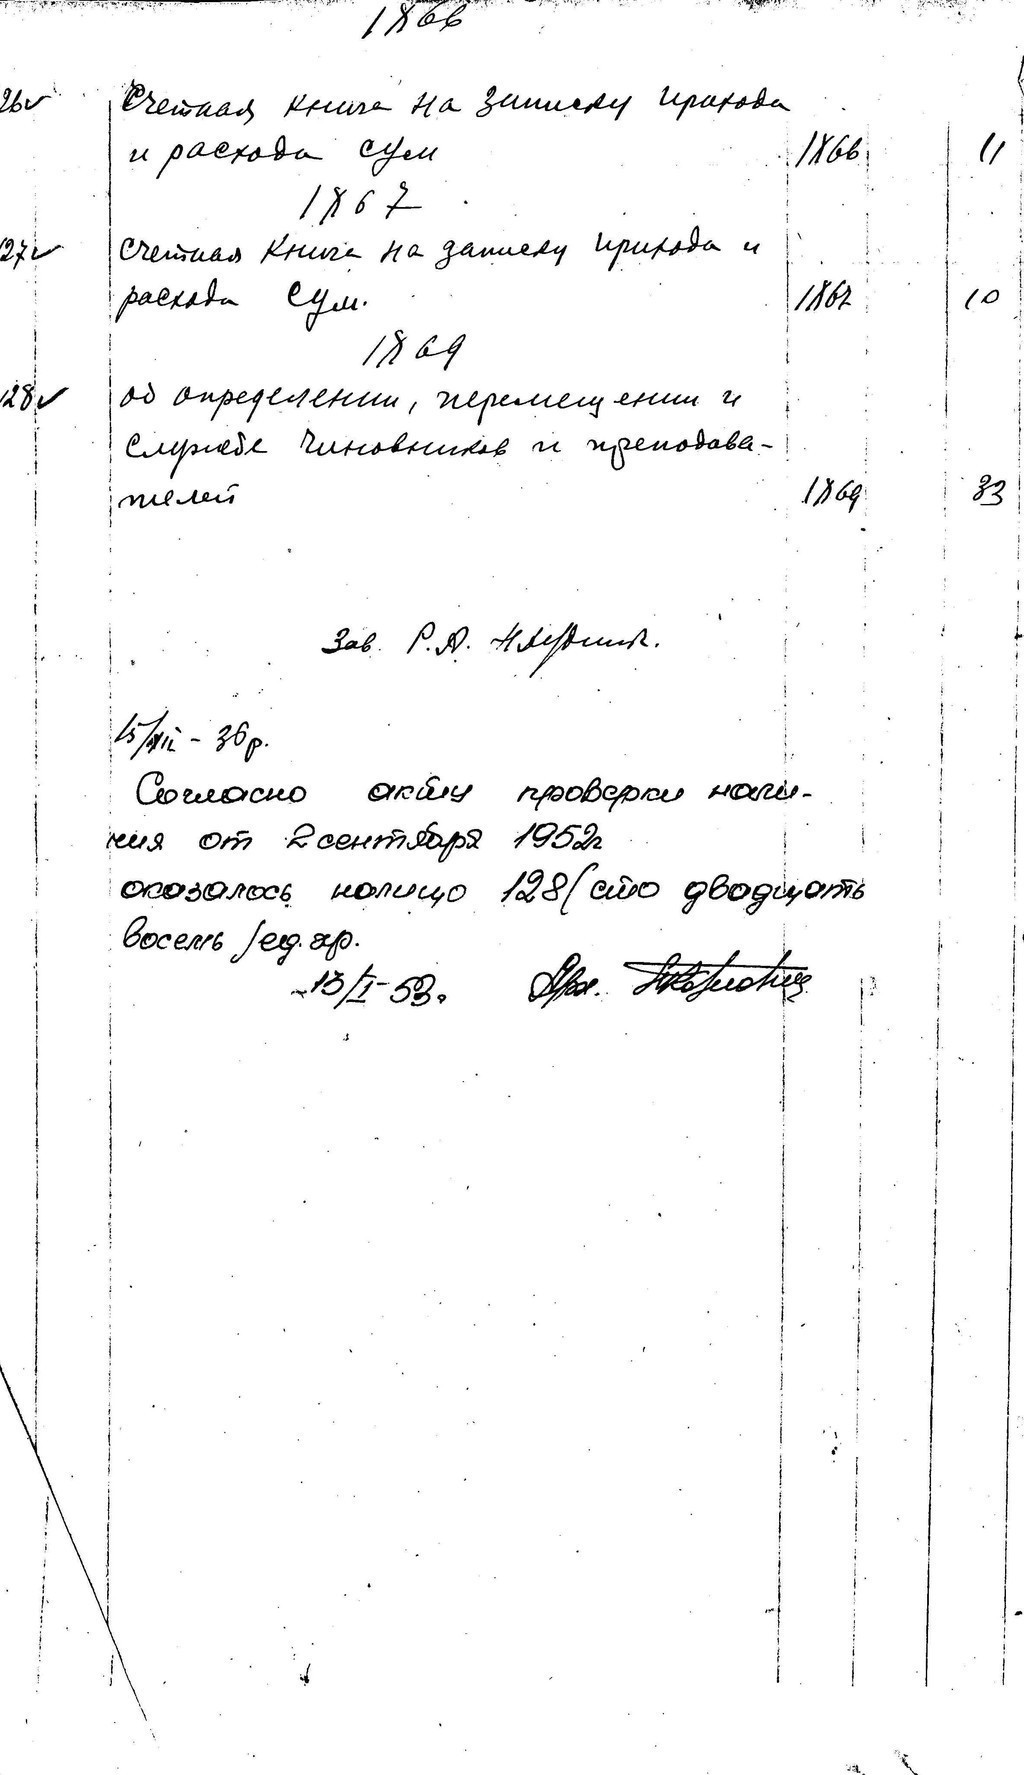 1866
26 Счетная книга на записку прихода
и расхода сум 1866 11
1867
127 Счетная книга на записку прихода и
расхода сум. 1867 10
1869
128 об определении, перемещении и
службе чиновников и преподава-
телей 1869 33
Зав. Р.А.
15/XII - 36 р.
Согласно акту проверки нали-
чия от 2 сентября 1952г
оказалось налицо 128 (сто двадцать
восемь) ед. хр.
13/I - 53. Арх.